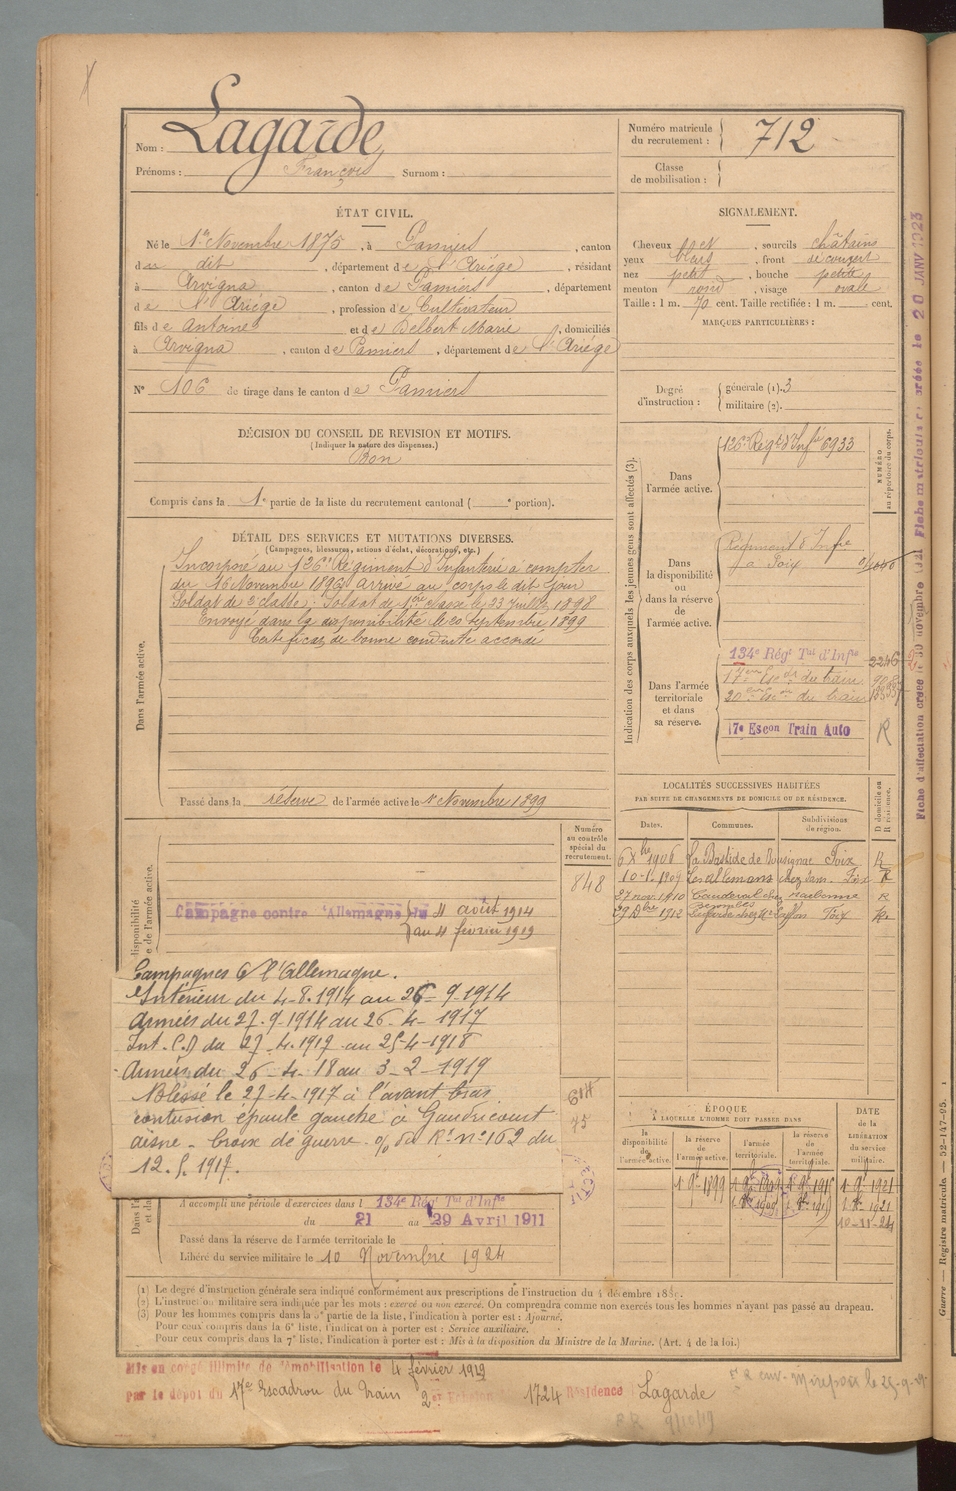 Nom : Lagarde
Prénoms : François Surnom :
Numéro matricule du recrutement : 712
Classe de mobilisation :
ÉTAT CIVIL.
Né le 1er Novembre 1875, à Pamiers, canton
du dit, département de l'Ariége, résidant
à Arvigna, canton de Pamiers, département
de l'Ariége, profession de Cultivateur
fils de Antoine et de Delbert Marie, domiciliés
à Arvigna, canton de Pamiers, département de l'Ariége
N° 106 de tirage dans le canton de Pamiers
SIGNALEMENT.
Cheveux et, sourcils châtains
yeux bleus, front découvert
nez petit, bouche petite
menton rond, visage ovale
Taille : 1 m. 70 cent. Taille rectifiée : 1 m. cent.
MARQUES PARTICULIÈRES :
Degré d'instruction : générale (1). 3
militaire (2).
DÉCISION DU CONSEIL DE REVISION ET MOTIFS.
(Indiquer la nature des dispenses.)
Bon
Compris dans la 1e partie de la liste du recrutement cantonal ( e portion).
DÉTAIL DES SERVICES ET MUTATIONS DIVERSES.
(Campagnes, blessures, actions d'éclat, décorations, etc.)
Dans l'armée active.
Incorporé au 126e Régiment d'Infanterie à compter
du 16 Novembre 1896 arrivé au corps le dit jour
Soldat de 2e classe; Soldat de 1ère classe le 23 Juillet 1898
Envoyé dans la disponibilité le 20 Septembre 1899
Certificat de bonne conduite accordé
Passé dans la réserve de l'armée active le 1er Novembre 1899
Indication des corps auxquels les jeunes gens sont affectés (3).
NUMÉRO au répertoire du corps.
Dans l'armée active.
126e Régt d'Infie 6933
Dans la disponibilité ou dans la réserve de l'armée active.
Régiment d'Infie
à Foix
Dans l'armée territoriale et dans sa réserve.
134e Régt Tal d'Infie 2246
17ème Eson du train
20ème Eson du train
17e Escon Train Auto R
Fiche matriculaire créée le 20 JANV 1923
LOCALITÉS SUCCESSIVES HABITÉES
PAR SUITE DE CHANGEMENTS DE DOMICILE OU DE RÉSIDENCE.
Dates. Communes. Subdivisions de région. D domicile ou R résidence.
6 Xbre 1906 La Bastide de Bousignac Foix R
10-1-1909 Les allemans Foix R
27 nov. 1910 Narbonne R
29 Dbre 1912 Lagarde Foix R.
Numéro au contrôle spécial du recrutement.
848
Campagne contre l'Allemagne du 4 août 1914
au 4 février 1919
Campagnes C/ l'Allemagne.
Intérieur du 4-8-1914 au 26-9-1914
Armées du 27-9-1914 au 26-4-1917
Int. C.D du 27-4-1917 au 25-4-1918
Armées du 26-4-18 au 3-2-1919
Blessé le 27-4-1917 à l'avant bras
contusion épaule gauche à Gaudricourt
aisne - Croix de guerre o/ du Rt n° 162 du
12.5.1917.
ÉPOQUE
À LAQUELLE L'HOMME DOIT PASSER DANS
la disponibilité de l'armée active. la réserve de l'armée active. l'armée territoriale. la réserve de l'armée territoriale.
DATE DE LA LIBÉRATION du service militaire.
1 9bre 1899 1 9bre 1909 1 9bre 1915 1 9bre 1921
10-11-24
A accompli une période d'exercices dans l 134e Rég Tal d'Infie
du 21 au 29 Avril 1911
Passé dans la réserve de l'armée territoriale le
Libéré du service militaire le 10 Novembre 1924
(1) Le degré d'instruction générale sera indiqué conformément aux prescriptions de l'instruction du 4 décembre 1889.
(2) L'instruction militaire sera indiquée par les mots : exercé ou non exercé. On comprendra comme non exercés tous les hommes n'ayant pas passé au drapeau.
(3) Pour les hommes compris dans la 5e partie de la liste, l'indication à porter est : Ajourné.
Pour ceux compris dans la 6e liste, l'indication à porter est : Service auxiliaire.
Pour ceux compris dans la 7e liste, l'indication à porter est : Mis à la disposition du Ministre de la Marine. (Art. 4 de la loi.)
Mis en congé illimité de démobilisation le 4 février 1919
Par le dépôt du 17e Escadron du Train 2e Echelon 1724 Résidence Lagarde
Guerre — Registre matricule. — 52-147-95.